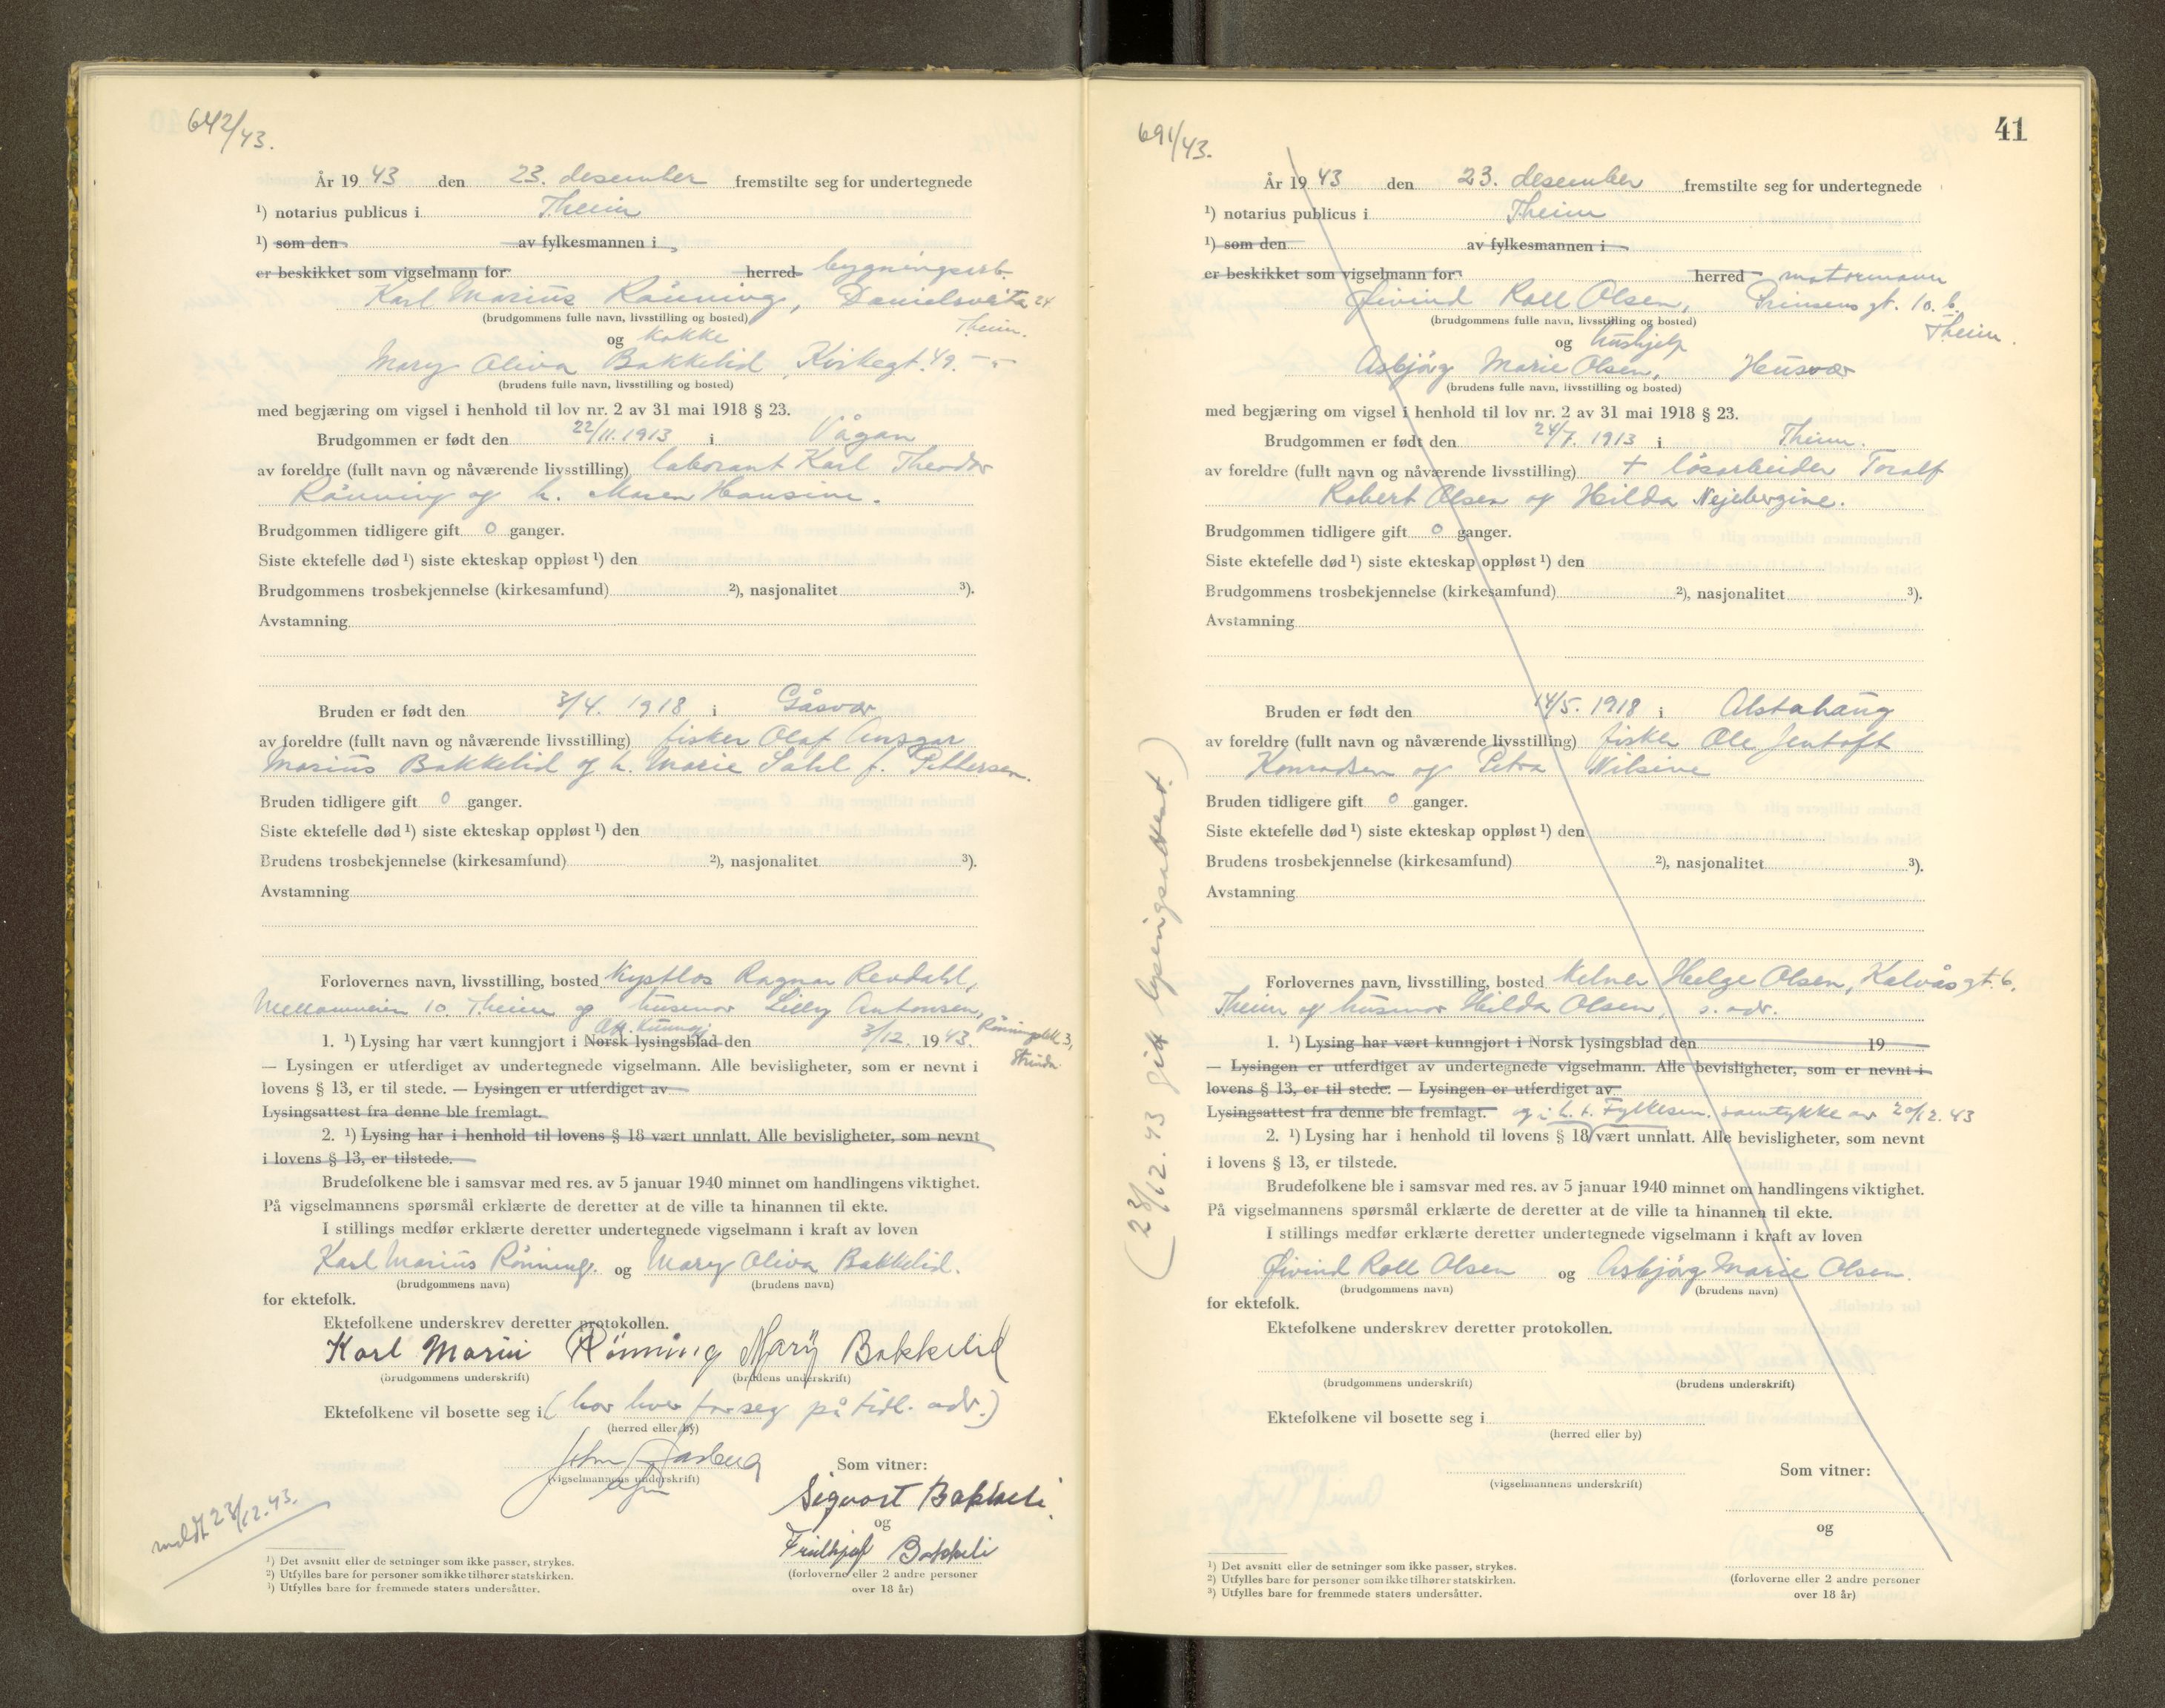 642/43.
År 19 43 den 23. desember fremstilte seg for undertegnede
¹) notarius publicus i Theim
¹) som den av fylkesmannen i
er beskikket som vigselmann for herred bygningsarb.
Karl Marius Rönning, Danielsveita 24
(brudgommens fulle navn, livsstilling og bosted) Theim.
og kokke
Mary Oliva Bakkelid, Kirkegt. 49. – " –
(brudens fulle navn, livsstilling og bosted)
med begjæring om vigsel i henhold til lov nr. 2 av 31 mai 1918 § 23.
Brudgommen er født den 22/11. 1913 i Vågan
av foreldre (fullt navn og nåværende livsstilling) laborant Karl Theodor
Rönning og h. Maren Hansine.
Brudgommen tidligere gift 0 ganger.
Siste ektefelle død ¹) siste ekteskap oppløst ¹) den
Brudgommens trosbekjennelse (kirkesamfund) ²), nasjonalitet ³).
Avstamning
Bruden er født den 3/4. 1918 i Gåsvær
av foreldre (fullt navn og nåværende livsstilling) fisker Olaf Ansgar
Marius Bakkelid og h. Marie Sahl f. Pettersen.
Bruden tidligere gift 0 ganger.
Siste ektefelle død ¹) siste ekteskap oppløst ¹) den
Brudens trosbekjennelse (kirkesamfund) ²), nasjonalitet ³).
Avstamning
Forlovernes navn, livsstilling, bosted Ragnar Revdahl,
Mellomveien 10. Theim og husmor Lilly Antonsen,
1. ¹) Lysing har vært kunngjort i Norsk lysingsblad den 3/12. 19 43. 3, Strinda
— Lysingen er utferdiget av undertegnede vigselmann. Alle bevisligheter, som er nevnt i
lovens § 13, er til stede. — Lysingen er utferdiget av
Lysingsattest fra denne ble fremlagt.
2. ¹) Lysing har i henhold til lovens § 18 vært unnlatt. Alle bevisligheter, som nevnt
i lovens § 13, er tilstede.
Brudefolkene ble i samsvar med res. av 5 januar 1940 minnet om handlingens viktighet.
På vigselmannens spørsmål erklærte de deretter at de ville ta hinannen til ekte.
I stillings medfør erklærte deretter undertegnede vigselmann i kraft av loven
Karl Marius Rönning. og Mary Oliva Bakkelid.
(brudgommens navn) (brudens navn)
for ektefolk.
Ektefolkene underskrev deretter protokollen.
Karl Mariu Rönning Mary Bakkelid
(brudgommens underskrift) (brudens underskrift)
Ektefolkene vil bosette seg i (bor hver for seg på tidl. adr.)
(herred eller by)
(vigselmannens underskrift)
Som vitner:
Sigvart Bakkeli.
og
Fridthjof Bakkeli
(forloverne eller 2 andre personer
over 18 år)
meldt 23/12.43.
¹) Det avsnitt eller de setninger som ikke passer, strykes.
²) Utfylles bare for personer som ikke tilhører statskirken.
³) Utfylles bare for fremmede staters undersåtter.
41
691/43.
År 19 43 den 23. desember fremstilte seg for undertegnede
¹) notarius publicus i Theim
¹) som den av fylkesmannen i
er beskikket som vigselmann for herred motormann
Øivind Roll Olsen, Prinsens gt. 10. b.
(brudgommens fulle navn, livsstilling og bosted) Theim.
og hushjelp
Asbjörg Marie Olsen, Husvær
(brudens fulle navn, livsstilling og bosted)
med begjæring om vigsel i henhold til lov nr. 2 av 31 mai 1918 § 23.
Brudgommen er født den 24/7. 1913 i Theim.
av foreldre (fullt navn og nåværende livsstilling) + lösarbeider Toralf
Robert Olsen og Hilda Nejebergine.
Brudgommen tidligere gift 0 ganger.
Siste ektefelle død ¹) siste ekteskap oppløst ¹) den
Brudgommens trosbekjennelse (kirkesamfund) ²), nasjonalitet ³).
Avstamning
Bruden er født den 14/5. 1918 i Alstahaug
av foreldre (fullt navn og nåværende livsstilling) fisker Ole Jentoft
Konradsen og Petra Nilsine
Bruden tidligere gift 0 ganger.
Siste ektefelle død ¹) siste ekteskap oppløst ¹) den
Brudens trosbekjennelse (kirkesamfund) ²), nasjonalitet ³).
Avstamning
Forlovernes navn, livsstilling, bosted Kelner Helge Olsen, Kalvås gt. 6,
Theim og husmor Hilda Olsen, s. adr.
1. ¹) Lysing har vært kunngjort i Norsk lysingsblad den 19
— Lysingen er utferdiget av undertegnede vigselmann. Alle bevisligheter, som er nevnt i
lovens § 13, er til stede. — Lysingen er utferdiget av
Lysingsattest fra denne ble fremlagt. og i h. t. Fylkesm. samtykke av 20/12. 43
2. ¹) Lysing har i henhold til lovens § 18 vært unnlatt. Alle bevisligheter, som nevnt
i lovens § 13, er tilstede.
Brudefolkene ble i samsvar med res. av 5 januar 1940 minnet om handlingens viktighet.
På vigselmannens spørsmål erklærte de deretter at de ville ta hinannen til ekte.
I stillings medfør erklærte deretter undertegnede vigselmann i kraft av loven
Øivind Roll Olsen og Asbjörg Marie Olsen.
(brudgommens navn) (brudens navn)
for ektefolk.
Ektefolkene underskrev deretter protokollen.
(brudgommens underskrift) (brudens underskrift)
Ektefolkene vil bosette seg i
(herred eller by)
(vigselmannens underskrift)
Som vitner:
og
(forloverne eller 2 andre personer
over 18 år)
¹) Det avsnitt eller de setninger som ikke passer, strykes.
²) Utfylles bare for personer som ikke tilhører statskirken.
³) Utfylles bare for fremmede staters undersåtter.
(23/12. 43 gitt lysingsattest.)